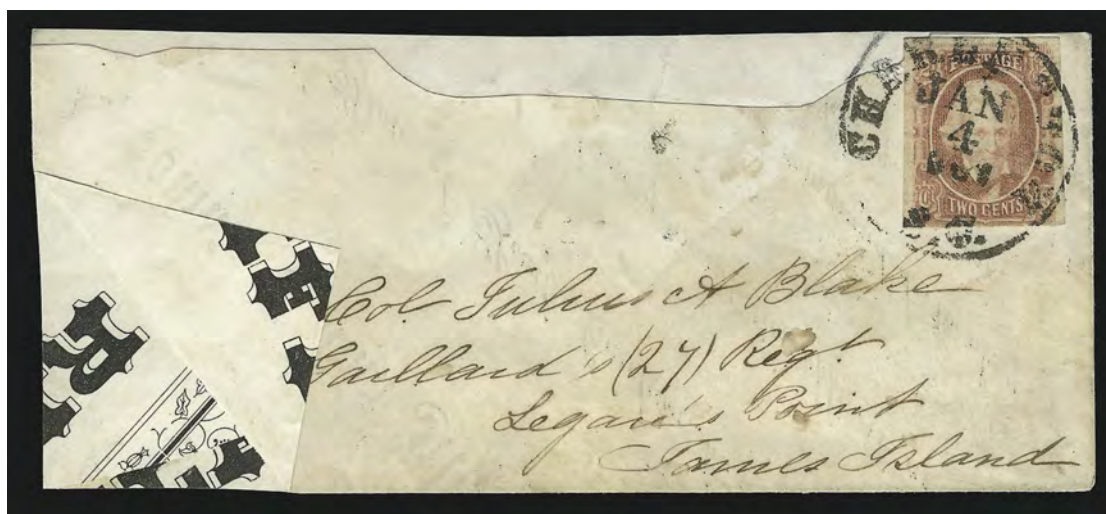 CHARLESTON
POSTAGE
JAN
4
TWO CENTS
S.C.
Col Julius A Blake
Gaillard's (27) Regt
Legare's Point
James Island